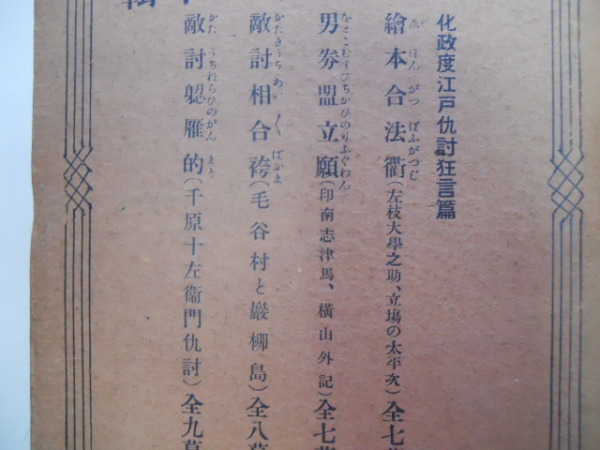 化政度江戸仇討狂言篇
繪本合法衢(左枝大學之助、立塲の太平次)全七
男劵盟立願(印南志津馬、横山外記)全七
敵討相合袴(毛谷村と巖栁島)全八幕
敵討雁的(千原十左衞門仇討)全九幕